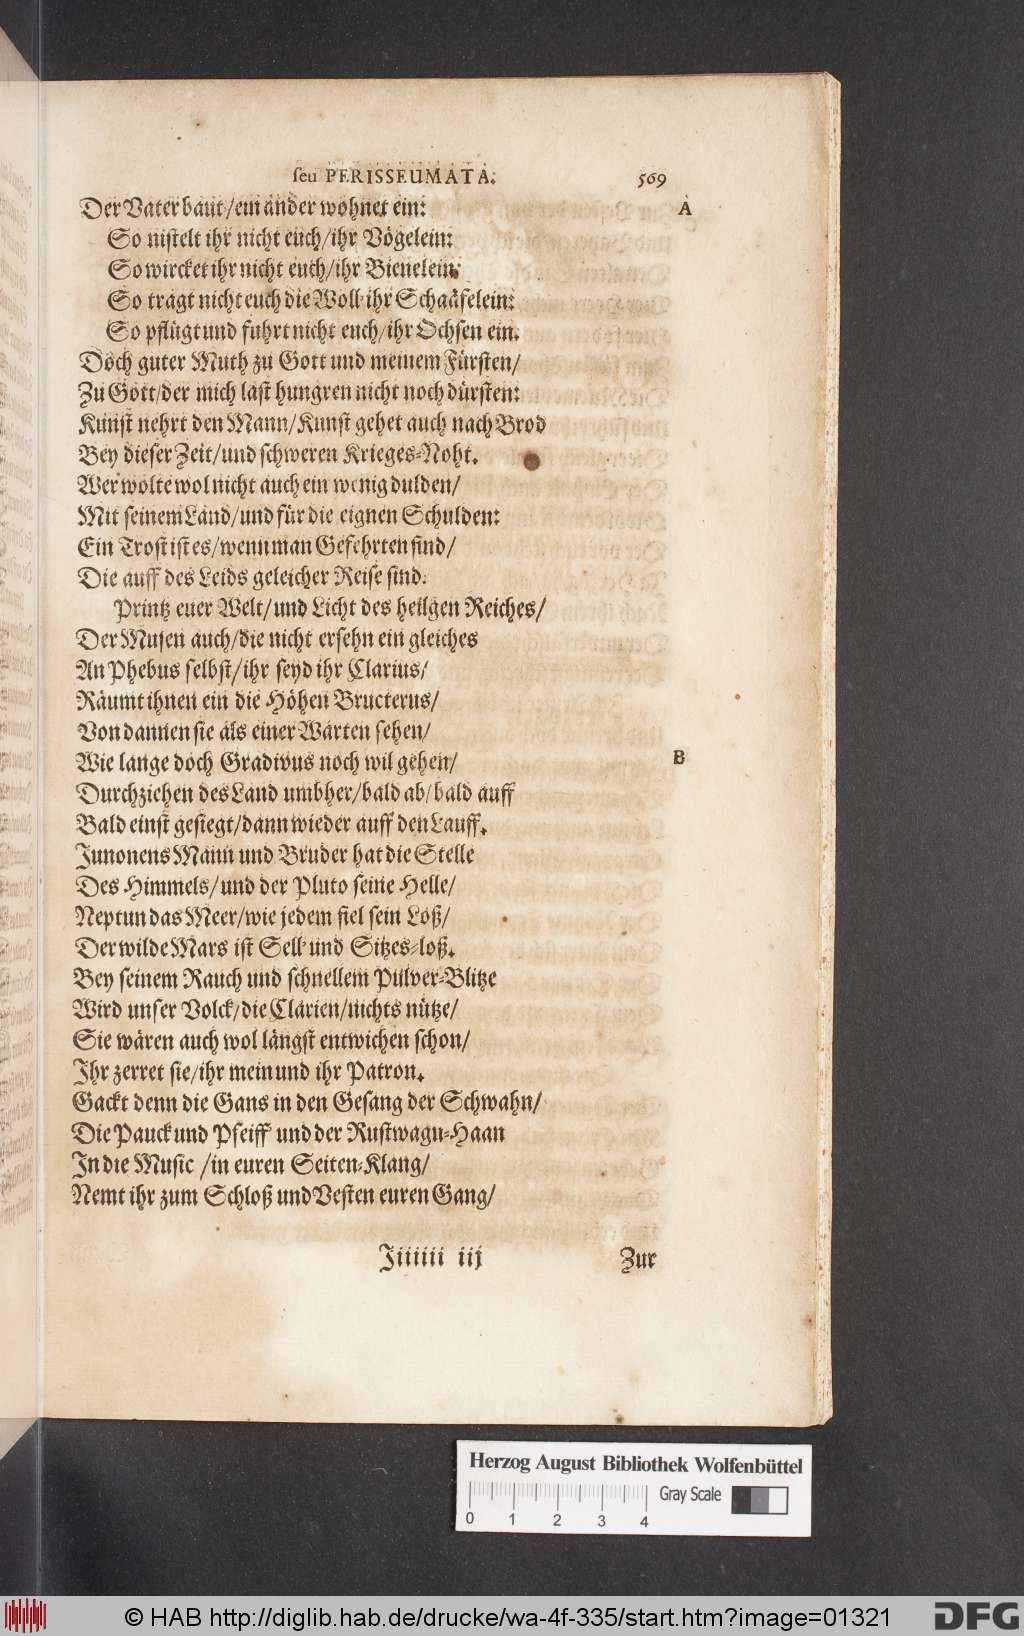 seu PERISSEUMATA. 569
Der Vater baut/ein ander wohnet ein: A
So nistelt ihr nicht euch/ihr Vögelein:
So wircket ihr nicht euch/ihr Bienelein:
So tragt nicht euch die Woll ihr Schaäfelein:
So pflügt und fuhrt nicht euch/ihr Ochsen ein.
Doch guter Muth zu Gott und meinem Fürsten/
Zu Gott/der mich last hungren nicht noch dürsten:
Kunst nehrt den Mann/Kunst gehet auch nach Brod
Bey dieser Zeit/und schweren Krieges-Noht.
Wer wolte wol nicht auch ein wenig dulden/
Mit seinem Land/und für die eignen Schulden:
Ein Trost ist es/wenn man Gefehrten find/
Die auff des Leids geleicher Reise sind.
Printz euer Welt/und Licht des heilgen Reiches/
Der Musen auch/die nicht ersehn ein gleiches
An Phebus selbst/ihr seyd ihr Clarius/
Räumt ihnen ein die Höhen Bructerus/
Von dannen sie als einer Warten sehen/
Wie lange doch Gradivus noch wil gehen/ B
Durchziehen des Land umbher/bald ab/bald auff
Bald einst gesiegt/dann wieder auff den Lauff.
Junonens Mann und Bruder hat die Stelle
Des Himmels/und der Pluto seine Helle/
Neptun das Meer/wie jedem fiel sein Loß/
Der wilde Mars ist Sell- und Sitzes-loß.
Bey seinem Rauch und schnellem Pulver-Blitze
Wird unser Volck/die Clarien/nichts nütze/
Sie wären auch wol längst entwichen schon/
Ihr zerret sie/ihr mein und ihr Patron.
Gackt denn die Gans in den Gesang der Schwahn/
Die Pauck und Pfeiff und der Rustwagn-Haan
In die Music /in euren Seiten-Klang/
Nemt ihr zum Schloß und Vesten euren Gang/
Jiiiiii iij Zur
Herzog August Bibliothek Wolfenbüttel
Gray Scale
0 1 2 3 4
© HAB http://diglib.hab.de/drucke/wa-4f-335/start.htm?image=01321 DFG